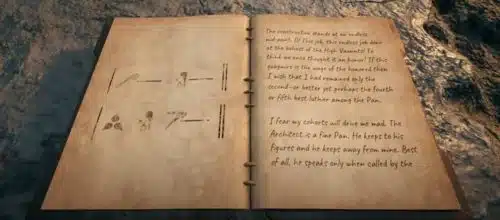 The construction stands at an endless
mid-point. Of this job, this endless job done
at the behest of the High Vaunnts! To
think we once thought it an honor! If this
quagmire is the wage of the honored then
I wish that I had remained only the
second—or better yet perhaps the fourth
or fifth best lather among the Pan.
I fear my cohorts will drive me mad. The
Architect is a fine Pan. He keeps to his
figures and he keeps away from mine. Best
of all, he speaks only when called by the